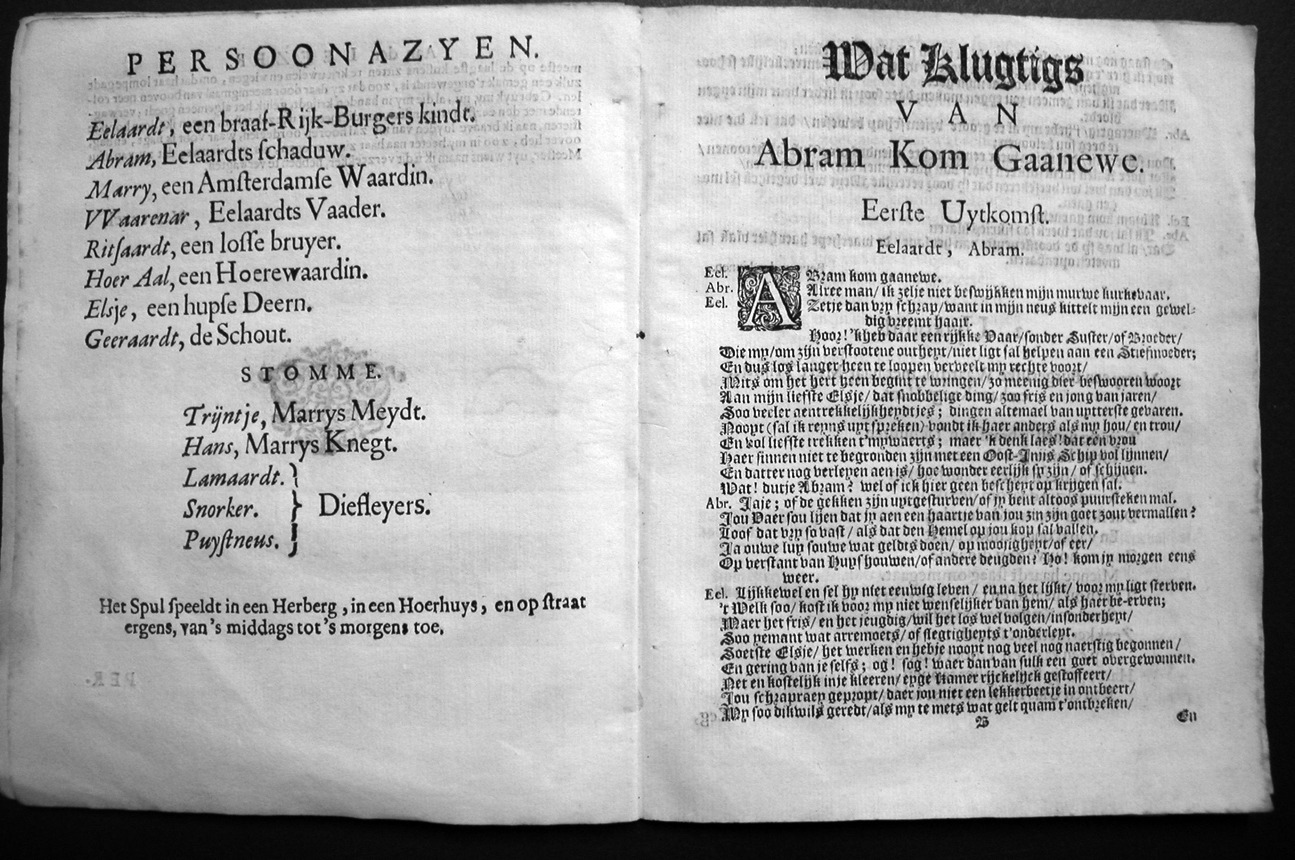 PERSOONAZYEN.
Eelaardt, een braaf-Rijk-Burgers kindt.
Abram, Eelaardts ſchaduw.
Marry, een Amſterdamſe Waardin.
VVaarenar, Eelaardts Vaader.
Ritſaardt, een loſſe bruyer.
Hoer Aal, een Hoerewaardin.
Elsje, een hupſe Deern.
Geeraardt, de Schout.
STOMME.
Trijntje, Marrys Meydt.
Hans, Marrys Knegt.
Lamaardt.
Snorker. } Diefleyers.
Puyſtneus.
Het Spul ſpeeldt in een Herberg, in een Hoerhuys, en op ſtraat
ergens, van 's middags tot 's morgens toe.
PER-
Wat Klugtigs
VAN
Abram Kom Gaanewe.
Eerſte Uytkomſt.
Eelaardt, Abram.
Eel. ABram kom gaanewe.
Abr. Alree man/ ik zelje niet beſwijkken mijn murwe kurkevaar.
Eel. Zetje dan vry ſchrap/ want in mijn neus kittelt mijn een gewel-
dig vreemt haair.
Hoor! 'k heb daar een rijkke Vaar/ ſonder Suster/ of Broeder/
Die my/ om zijn verſtootene outheyt/ niet ligt ſal helpen aan een Stiefmoeder;
En dus los langer heen te loopen verveelt my rechte voort/
Mits om het hert heen begint te wringen/ zo meenig dier beſwooren woort
Aan mijn liefſte Elsje/ dat ſnobbelige ding/ zoo fris en jong van jaren/
Soo veeler aentrekkelijkheydtjes; dingen altemael van uptterſte gevaren.
Nooyt (ſal ik reyns uyt ſpreken) vondt ik haer anders als my hou/ en trou/
En vol liefſte trekken t'mywaerts; maer 'k denk laes! dat een vrou
Haer ſinnen niet te begronden zijn met een Ooſt-Indis Schip vol lijnnen/
En datter nog verleyen aen is/ hoe wonder eerlijk ſy zijn/ of ſchijnen.
Wat! dutje Abram? wel of ick hier geen beſcheyt op krijgen ſal.
Abr. Jaje; of de gekken zijn uytgeſturven/ of jy bent altoos puurſteken mal.
Jou Vaer ſou lijen dat jy aen een haartje van jou zin zijn goet zout vermallen?
Loof dat vry ſo vaſt/ als dat den Hemel op jou kop ſal vallen.
Ja ouwe luy ſouwe wat geldts doen/ op mooijigheyt/ of eer/
Op verſtant van Huys houwen/ of andere deugden? Ho! kom jy morgen eens
weer.
Eel. Lijkkewel en ſel hy niet eeuwig leven/ en na het lijkt/ voor my ligt ſterven.
't Welk ſoo/ koſt ik voor my niet wenſelijker van hem/ als haer be-erven;
Maer het fris/ en het jeugdig/ wil het los wel volgen/ inſonderheyt/
Soo yemant wat arremoets/ of ſlegtigheyts t'onderleyt.
Soetſte Elsje/ het werken en hebje nooyt nog veel nog naerſtig begonnen/
En gering van je ſelfs; og! ſog! waer dan van ſulk een goet overgewonnen.
Net en koſtelijk in je kleeren/ eyge Kamer rijckelijck geſtoffeert/
Jou ſchapraey gepropt/ daer jou niet een lekkerbeetje in ontbeert/
My ſoo dikwils geredt/ als my te mets wat gelt quam t'ontbreken/
B En